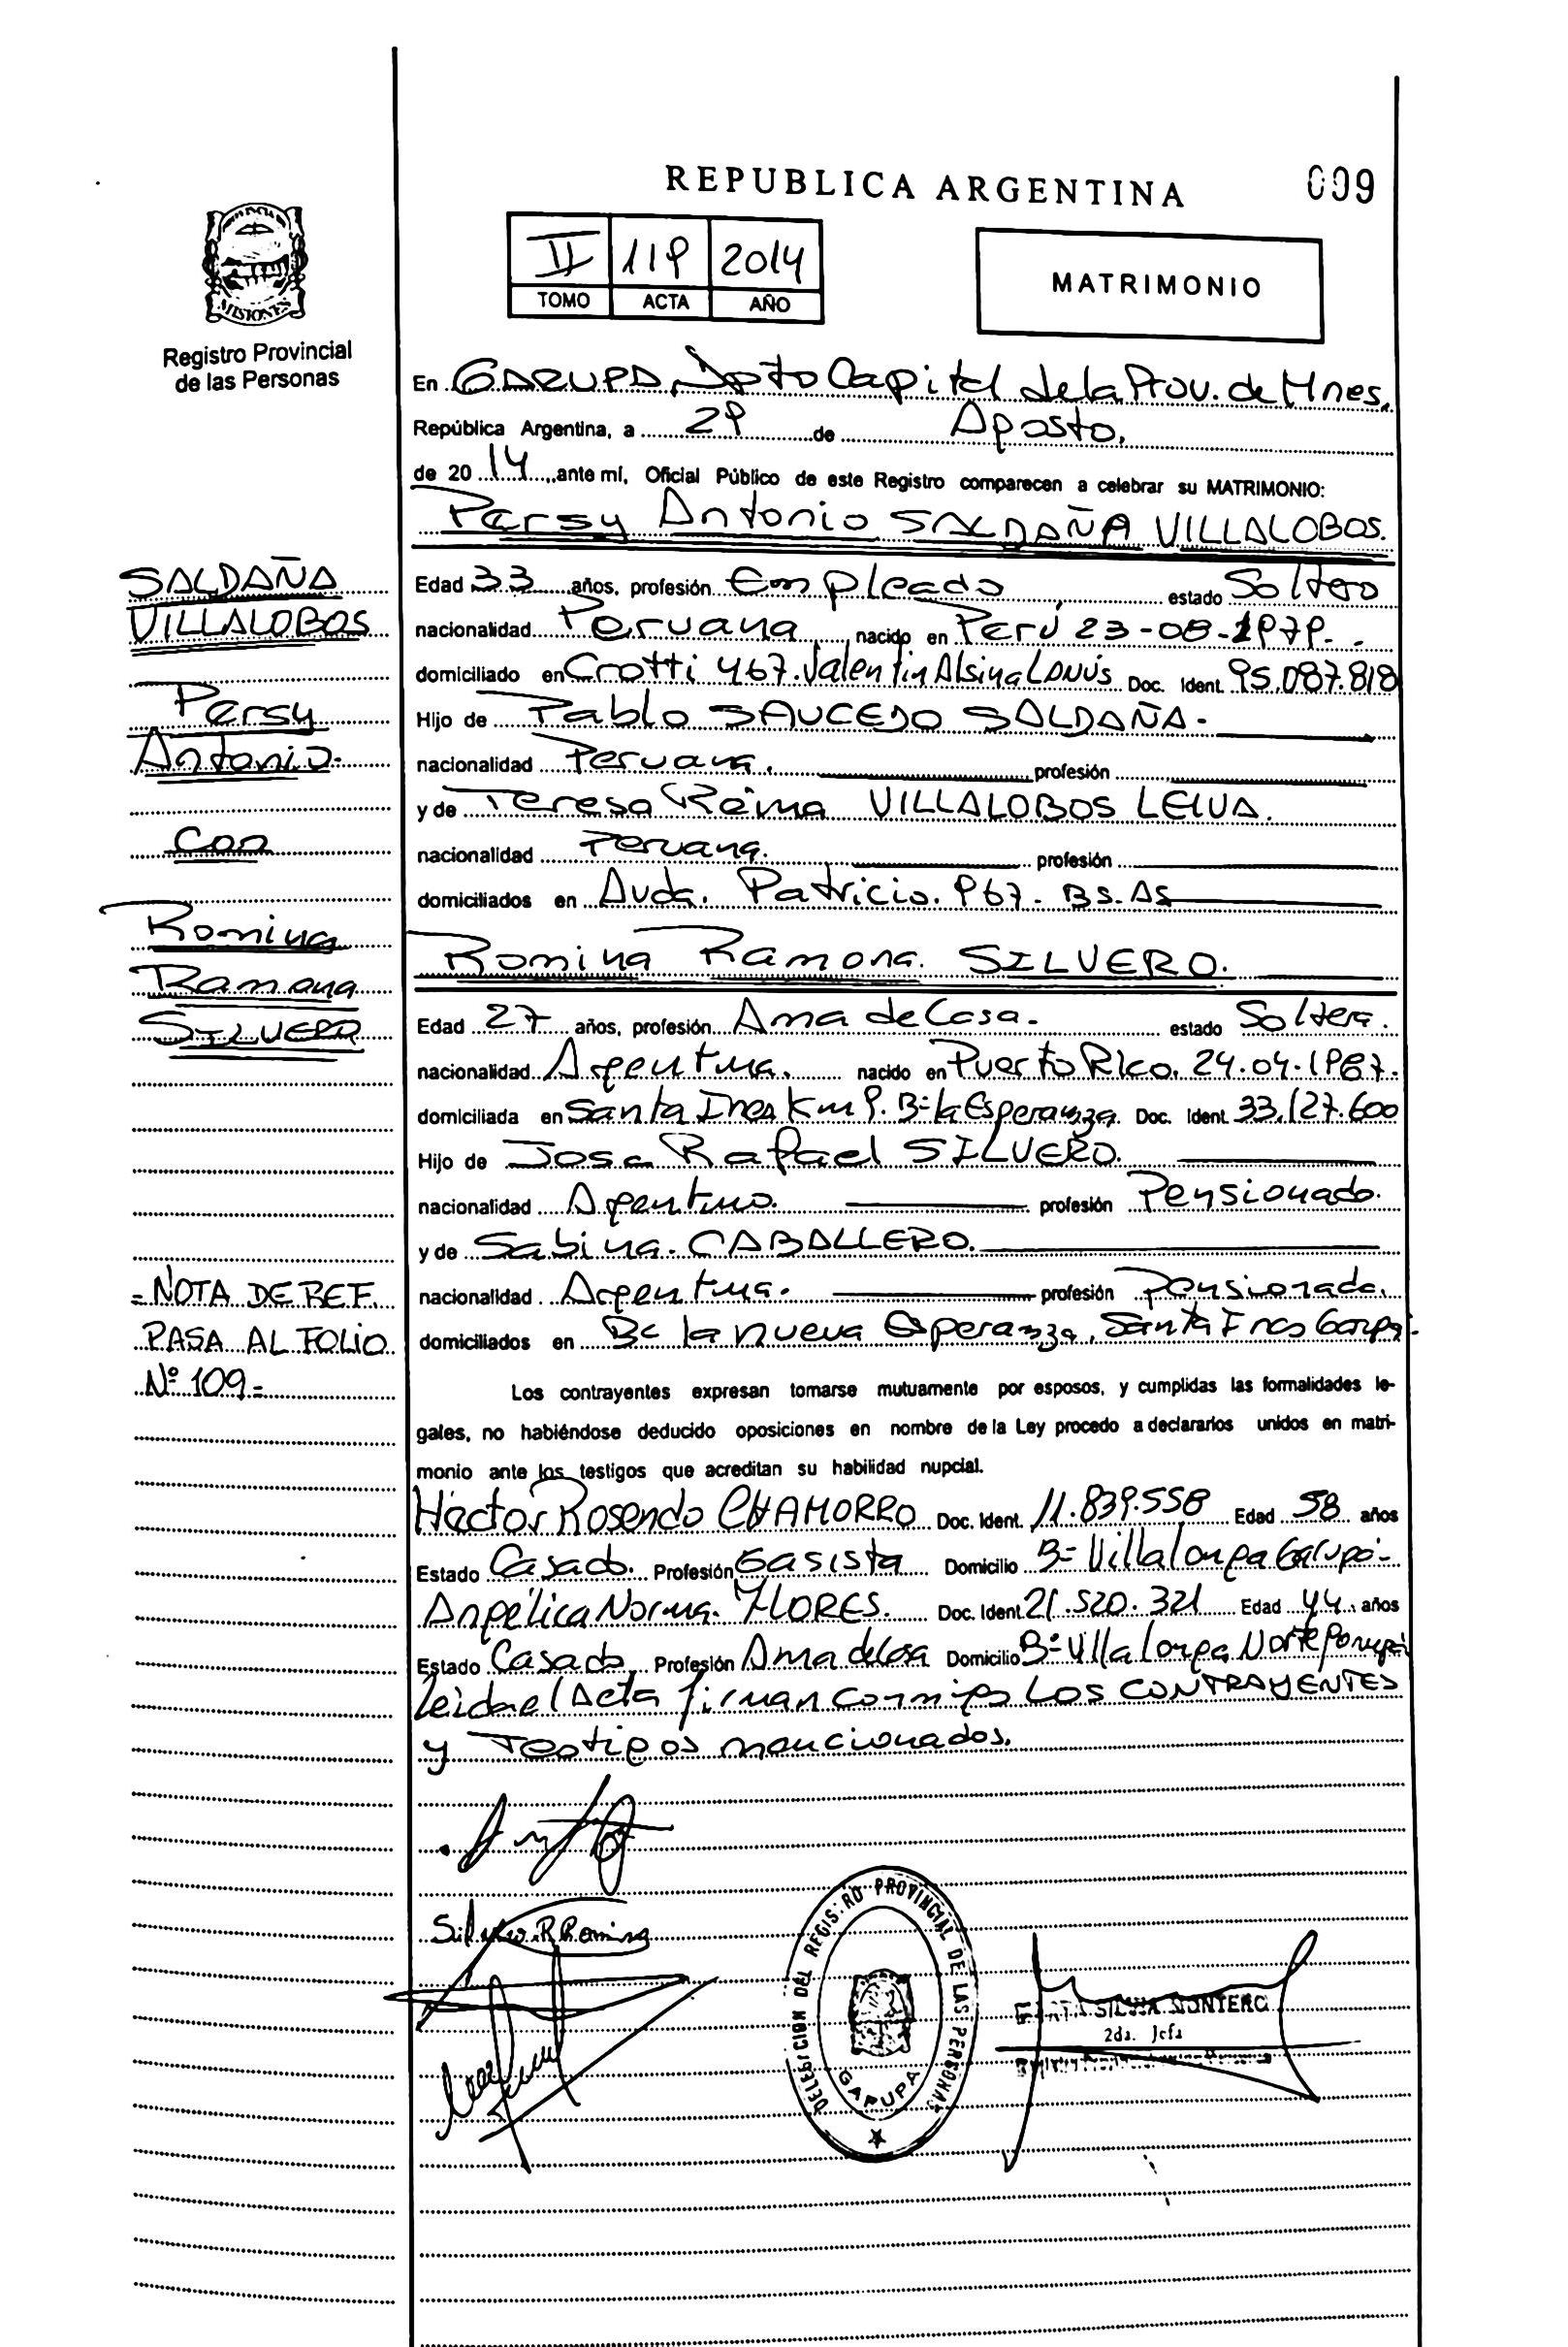 REPUBLICA ARGENTINA
009
II 119 2014
TOMO ACTA AÑO
MATRIMONIO
MISIONES
Registro Provincial
de las Personas
En GARUPA, Dpto Capital de la Prov. de Mnes.
República Argentina, a 29 de Agosto,
de 20 14 ante mí, Oficial Público de este Registro comparecen a celebrar su MATRIMONIO:
Persy Antonio SALDAÑA VILLALOBOS.
Edad 33 años, profesión Empleado estado Soltero
nacionalidad Peruana nacido en Perú 23-08-1979.
domiciliado en Crotti 467. Valentin Alsina LANÚS Doc. Ident. 95.087.818
Hijo de Pablo SAUCEDO SALDAÑA.
nacionalidad Peruana. profesión
y de Teresa Reina VILLALOBOS LEIVA.
nacionalidad Peruana. profesión
domiciliados en Avda. Patricio. 967. BS.AS
Romina Ramona. SILVERO.
Edad 27 años, profesión Ama de Casa. estado Soltera.
nacionalidad Argentina. nacido en Puerto Rico. 24.04.1987.
domiciliada en Santa Ines Km 9. Bº la Esperanza Doc. Ident. 33.127.600
Hijo de Jose Rafael SILVERO.
nacionalidad Argentino. profesión Pensionado.
y de Sabina. CABALLERO.
nacionalidad Argentina. profesión Pensionada.
domiciliados en Bº la nueva Esperanza, Santa Ines Garupa
Los contrayentes expresan tomarse mutuamente por esposos, y cumplidas las formalidades le-
gales, no habiéndose deducido oposiciones en nombre de la Ley procedo a declararlos unidos en matri-
monio ante los testigos que acreditan su habilidad nupcial.
Hector Rosendo CHAMORRO Doc. Ident. 11.839.558 Edad 58 años
Estado Casado. Profesión Gasista Domicilio Bº Villalonga Garupá
Angélica Norma. FLORES. Doc. Ident. 21.520.321 Edad 44 años
Estado Casada Profesión Ama de Casa Domicilio Bº Villa longa Norte Garupá
Leida el Acta firman conmigo LOS CONTRAYENTES
y Testigos mencionados.
SALDAÑA
VILLALOBOS
Persy
Antonio.
Con
Romina
Ramona
SILVERO
=NOTA DE REF.
PASA AL FOLIO
Nº 109=
Silvero R Romina
DELEGACION DEL REGISTRO PROVINCIAL DE LAS PERSONAS
GARUPA
SILVIA MONTERO
2da. Jefa